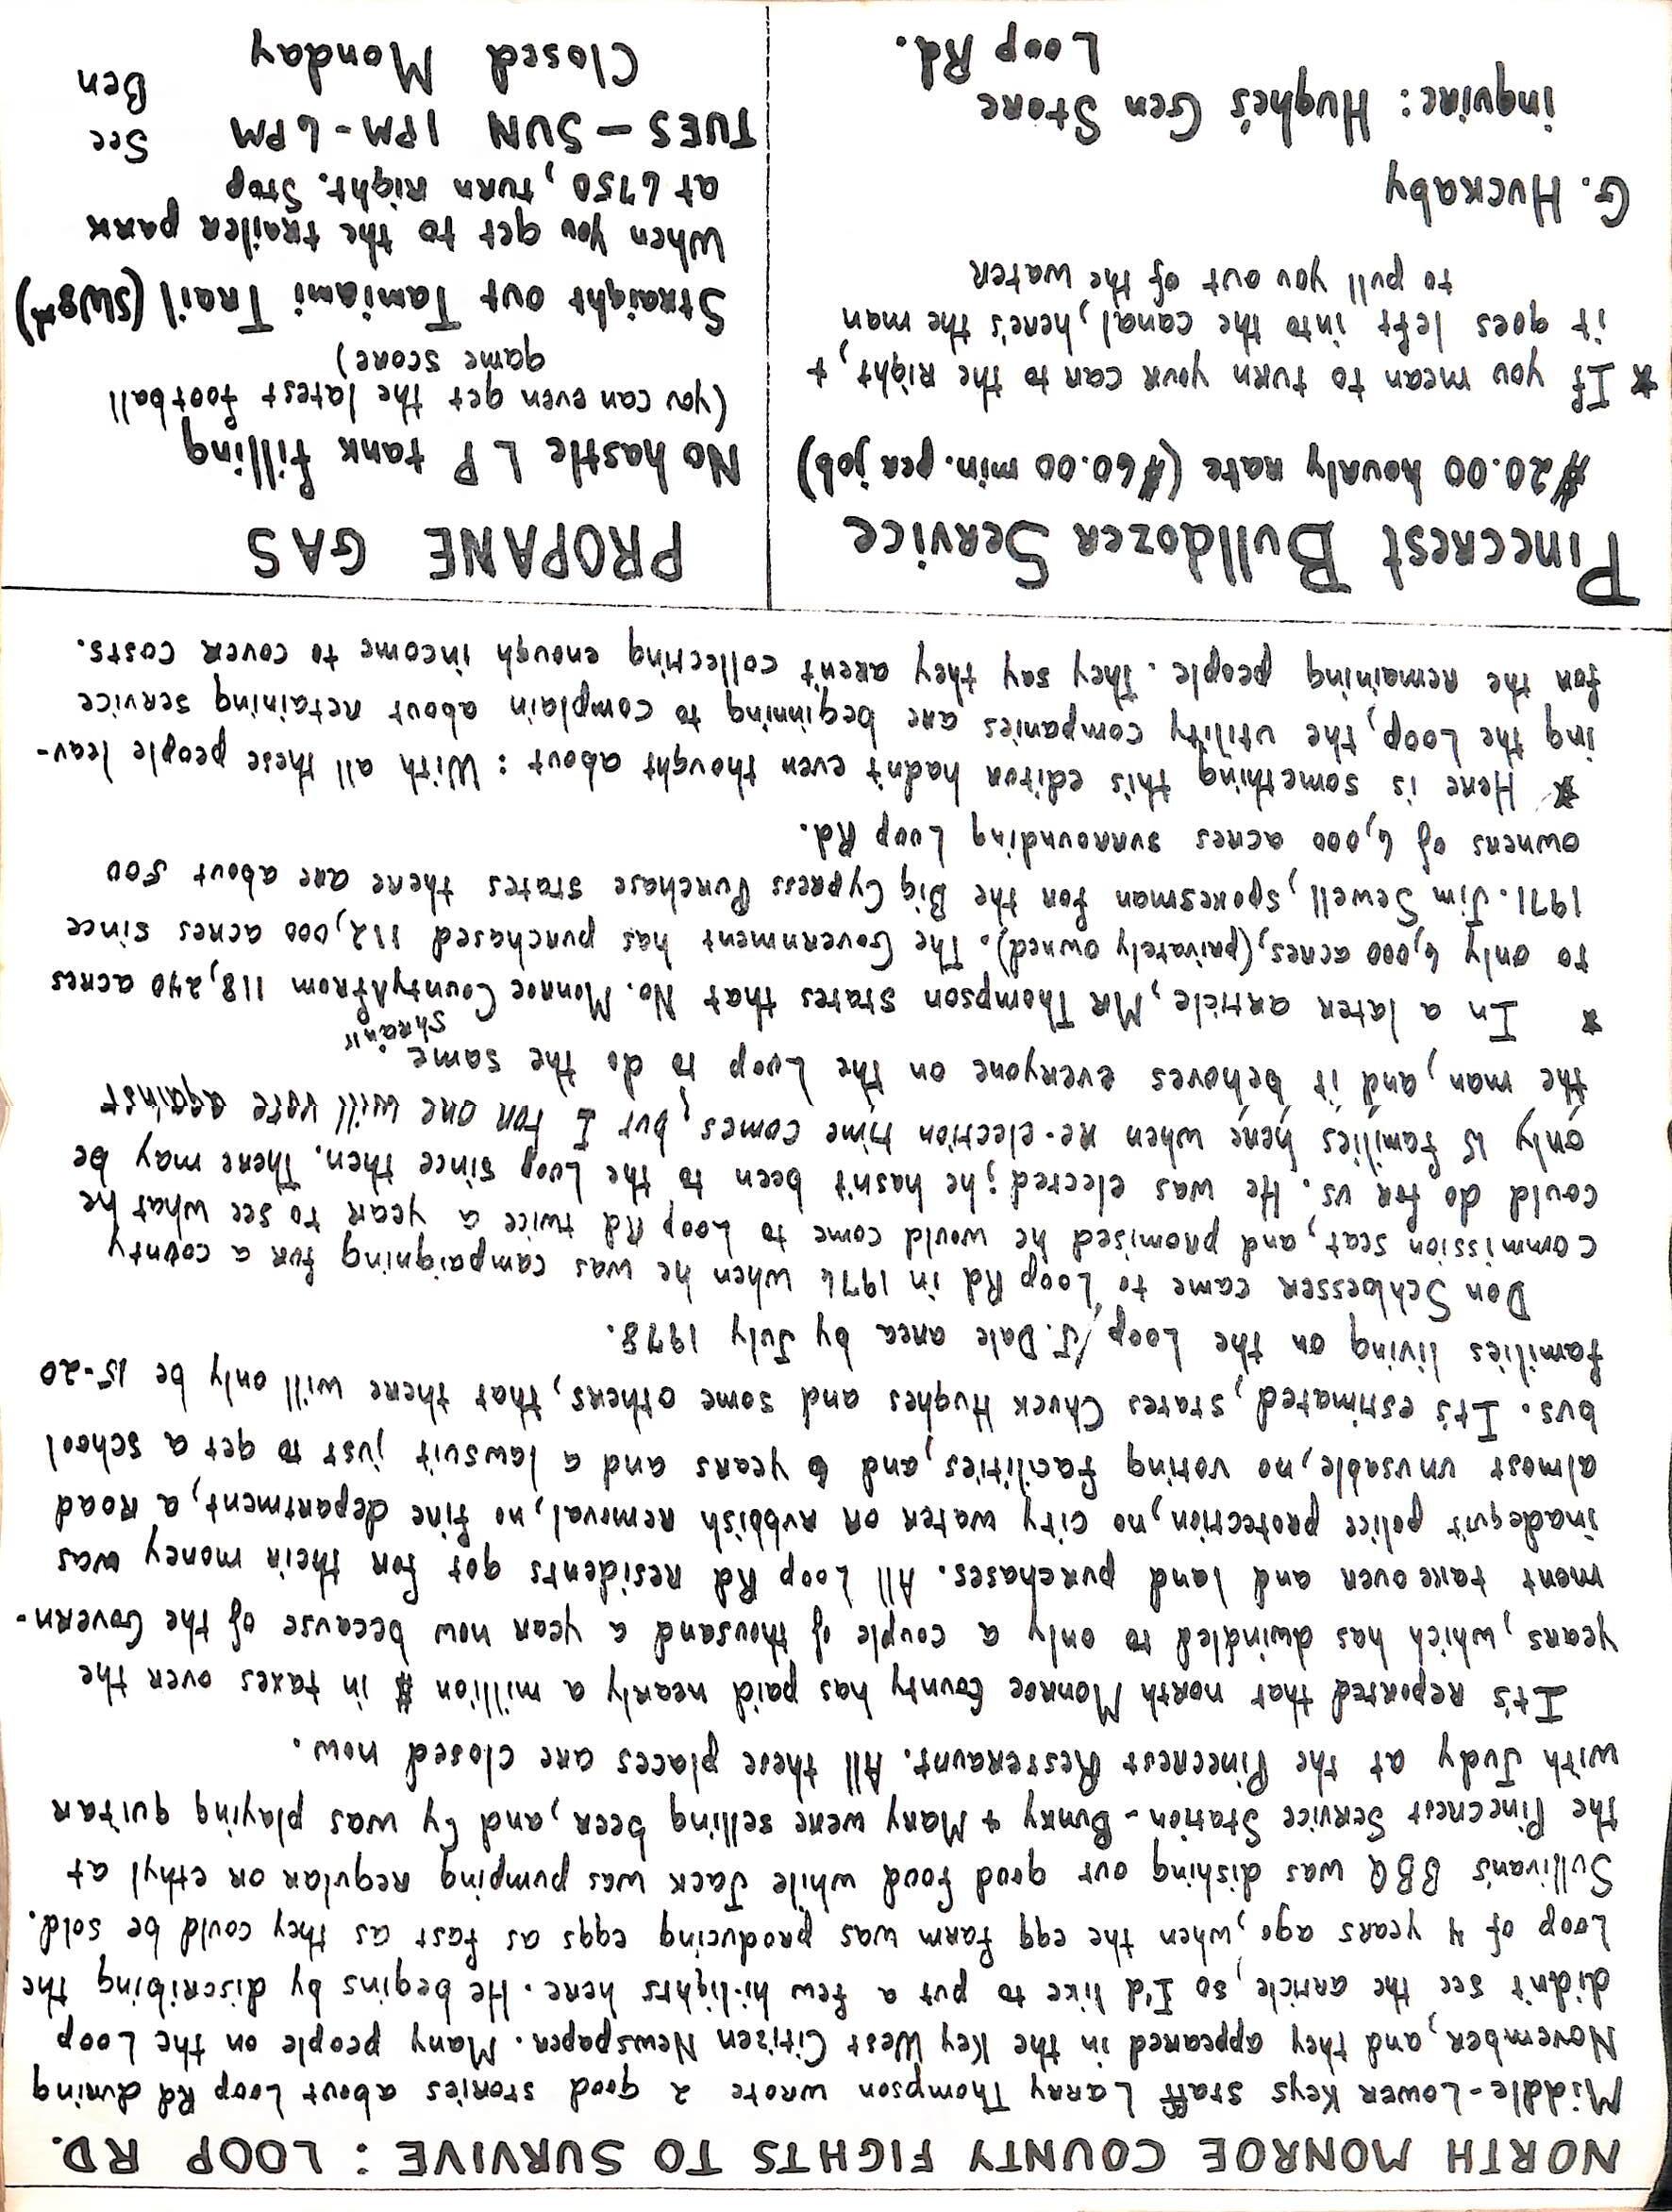 NORTH MONROE COUNTY FIGHTS TO SURVIVE : LOOP RD.
Middle-Lower Keys staff Larry Thompson wrote 2 good stories about Loop Rd during
November, and they appeared in the Key West Citizen Newspaper. Many people on the Loop
didn't see the article, so I'd like to put a few hi-lights here. He begins by discribing the
Loop of 4 years ago, when the egg farm was producing eggs as fast as they could be sold.
Sullivan's BBQ was dishing out good food while Jack was pumping regular or ethyl at
the Pinecrest Service Station - Bunny + Mary were selling beer, and Cy was playing guitar
with Judy at the Pinecrest Resteraunt. All these places are closed now.
It's reported that north Monroe County has paid nearly a million $ in taxes over the
years, which has dwindled to only a couple of thousand a year now because of the Govern-
ment take over and land purchases. All Loop Rd residents got for their money was
inadequit police protection, no city water or rubbish removal, no fire department, a road
almost unusable, no voting facilities, and 6 years and a lawsuit just to get a school
bus. It's estimated, states Chuck Hughes and some others, that there will only be 15-20
families living on the Loop/J. Dale area by July 1978.
Don Schloesser came to Loop Rd in 1976 when he was campaigning for a county
commission seat, and promised he would come to Loop Rd twice a year to see what he
could do for us. He was elected; he hasn't been to the Loop since then. There may be
only 15 families here when re-election time comes, but I for one will vote against
the man, and it behoves everyone on the Loop to do the same.
* In a later article, Mr Thompson states that No. Monroe County "shran" from 118,240 acres
to only 6,000 acres, (privately owned). The Government has purchased 112,000 acres since
1971. Jim Sewell, spokesman for the Big Cypress Purchase states there are about 500
owners of 6,000 acres surrounding Loop Rd.
* Here is something this editor hadn't even thought about : With all these people leav-
ing the Loop, the utility companies are beginning to complain about retaining service
for the remaining people. They say they aren't collecting enough income to cover costs.
Pinecrest Bulldozer Service
$20.00 hourly rate ($60.00 min. per job)
* If you mean to turn your car to the right, +
it goes left into the canal, here's the man
to pull you out of the water
G. Huckaby
inquire: Hughe's Gen Store
Loop Rd.
PROPANE GAS
No hastle L P tank filling
(you can even get the latest football
game score)
Straight out Tamiami Trail (SW8th)
When you get to the trailer park
at 6750, turn right. Stop
TUES - SUN 1PM - 6PM See
Closed Monday Ben